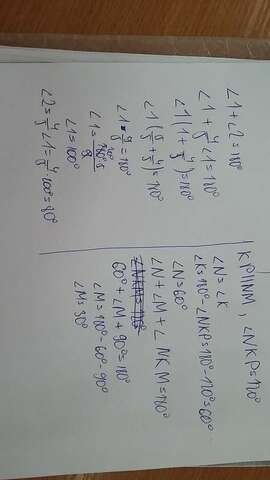 ∠1+∠2=180°
∠1+4/5∠1=180°
∠1(1+4/5)=180°
∠1(5/5+4/5)=180°
∠1·9/5=180°
∠1=180°·5/9
∠1=100°
∠2=4/5∠1=4/5·100°=80°
KP||NM, ∠NKP=120°
∠N=∠K
∠K=180°-∠NKP=180°-120°=60°
∠N=60°
∠N+∠M+∠NKM=180°
60°+∠M+90°=180°
∠M=180°-60°-90°
∠M=30°